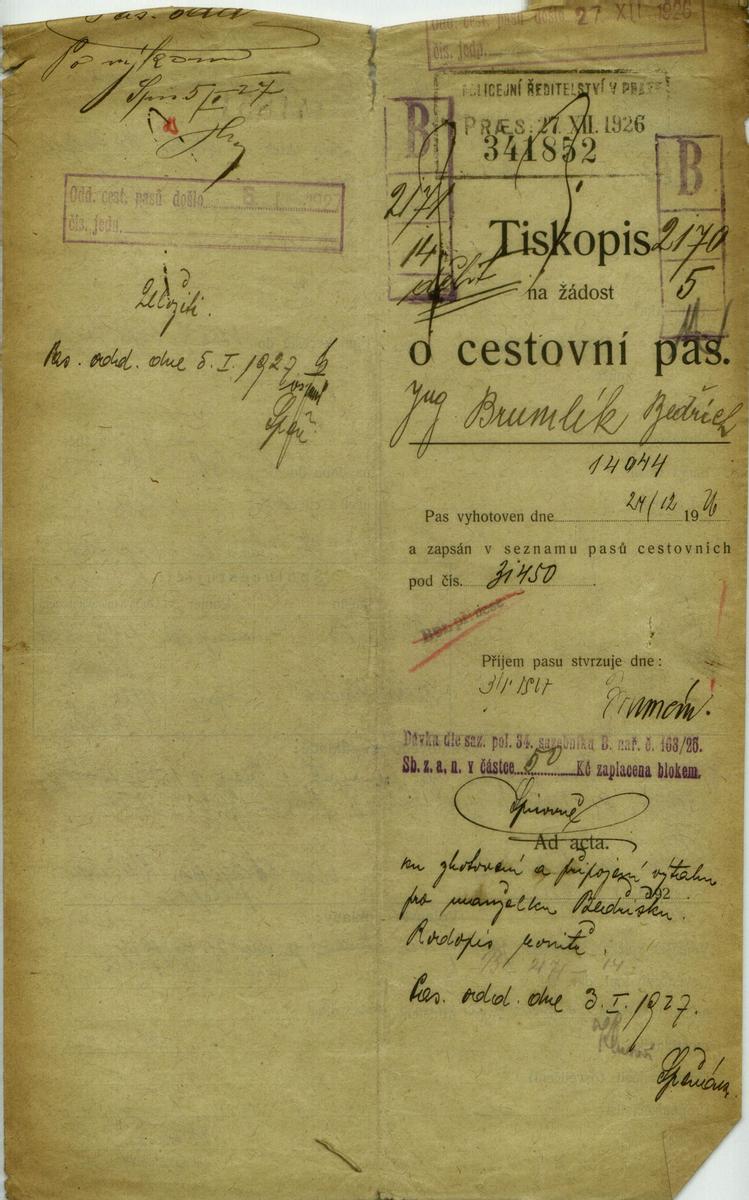 Pas. odd
Po výkonu
Spis 5/I 27
Odd. cest. pasů došlo 5 I 1927
čís. jedn.
Založiti.
Pas. odd. dne 5. I. 1927
Odd. cest. pasů došlo 27 XII 1926
čís. jedn.
POLICEJNÍ ŘEDITELSTVÍ V PRAZE
PRÆS. 27. XII. 1926
341852
B
2171
14
B
2170
5
Tiskopis
na žádost
o cestovní pas.
Ing Brumlík Bedřich
14044
Pas vyhotoven dne 24/12 1926
a zapsán v seznamu pasů cestovních
pod čís. 31450
Příjem pasu stvrzuje dne:
Dávka dle saz. pol. 34. sazebníku B. nař. č. 163/26.
Sb. z. a. n. v částce 50 Kč zaplacena blokem.
Spisovně
Ad acta.
192
ku zhotovení a připojení výtahu
pro manželku Bedřišku.
Rodopis
Pas. odd. dne 3. I. 1927.